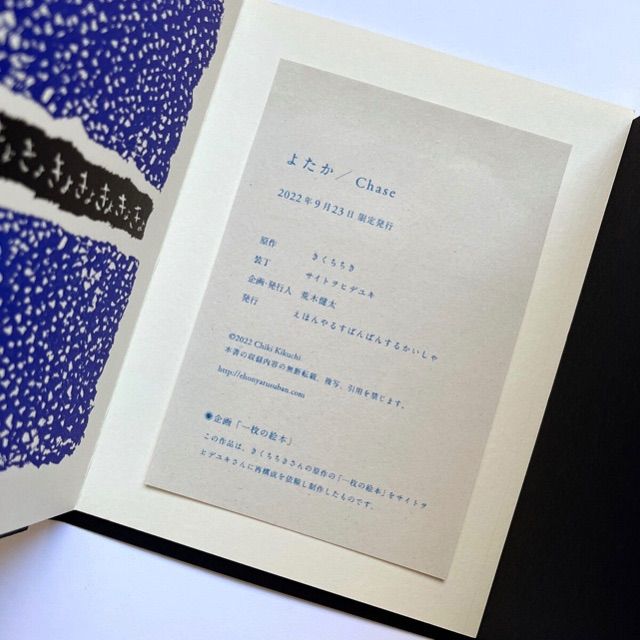 よたか／Chase
2022年9月23日 限定発行
原作 きくちちき
装丁 サイトヲヒデユキ
企画・発行人 荒木健太
発行 えほんやるすばんばんするかいしゃ
©2022 Chiki Kikuchi
本書の収録内容の無断転載、複写、引用を禁じます。
http://ehonyarusuban.com
◉企画「一枚の絵本」
この作品は、きくちちきさんの原作の「一枚の絵本」をサイトヲ
ヒデユキさんに再構成を依頼し制作したものです。